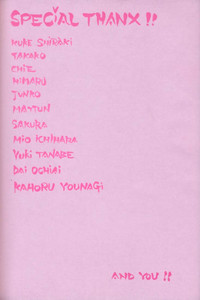 SPECIAL THANX !!
TAKAKO
CHIE
JUNKO
MAYFUN
SAKURA
MIO ICHIHARA
YUKI TANABE
DAI OCHIAI
KAHORU YOUNAGI
AND YOU !!